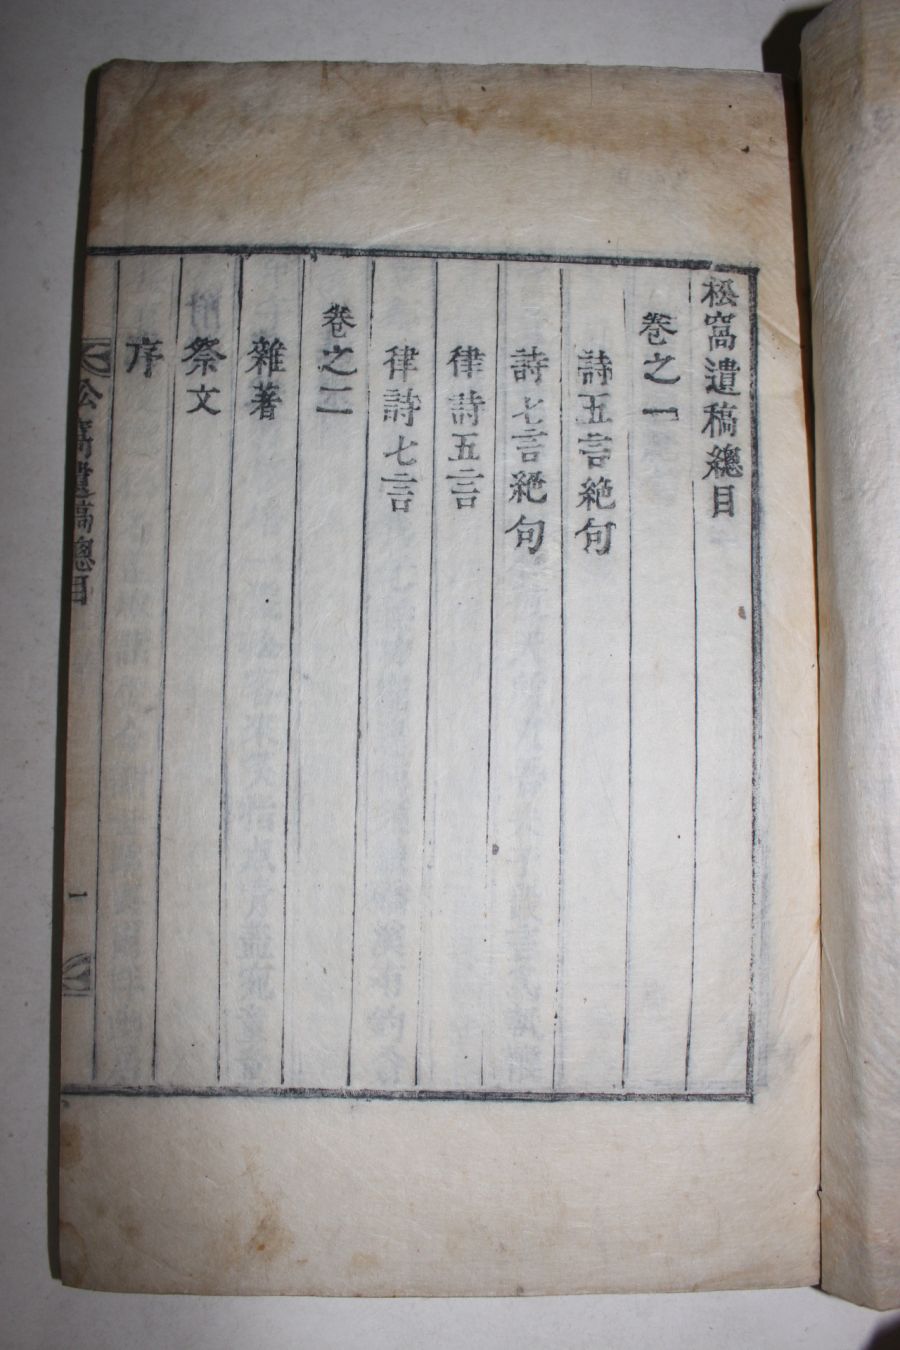 松窩遺稿總目
卷之一
詩五言絶句
詩七言絶句
律詩五言
律詩七言
卷之二
雜著
祭文
序
松窩遺稿總目
一